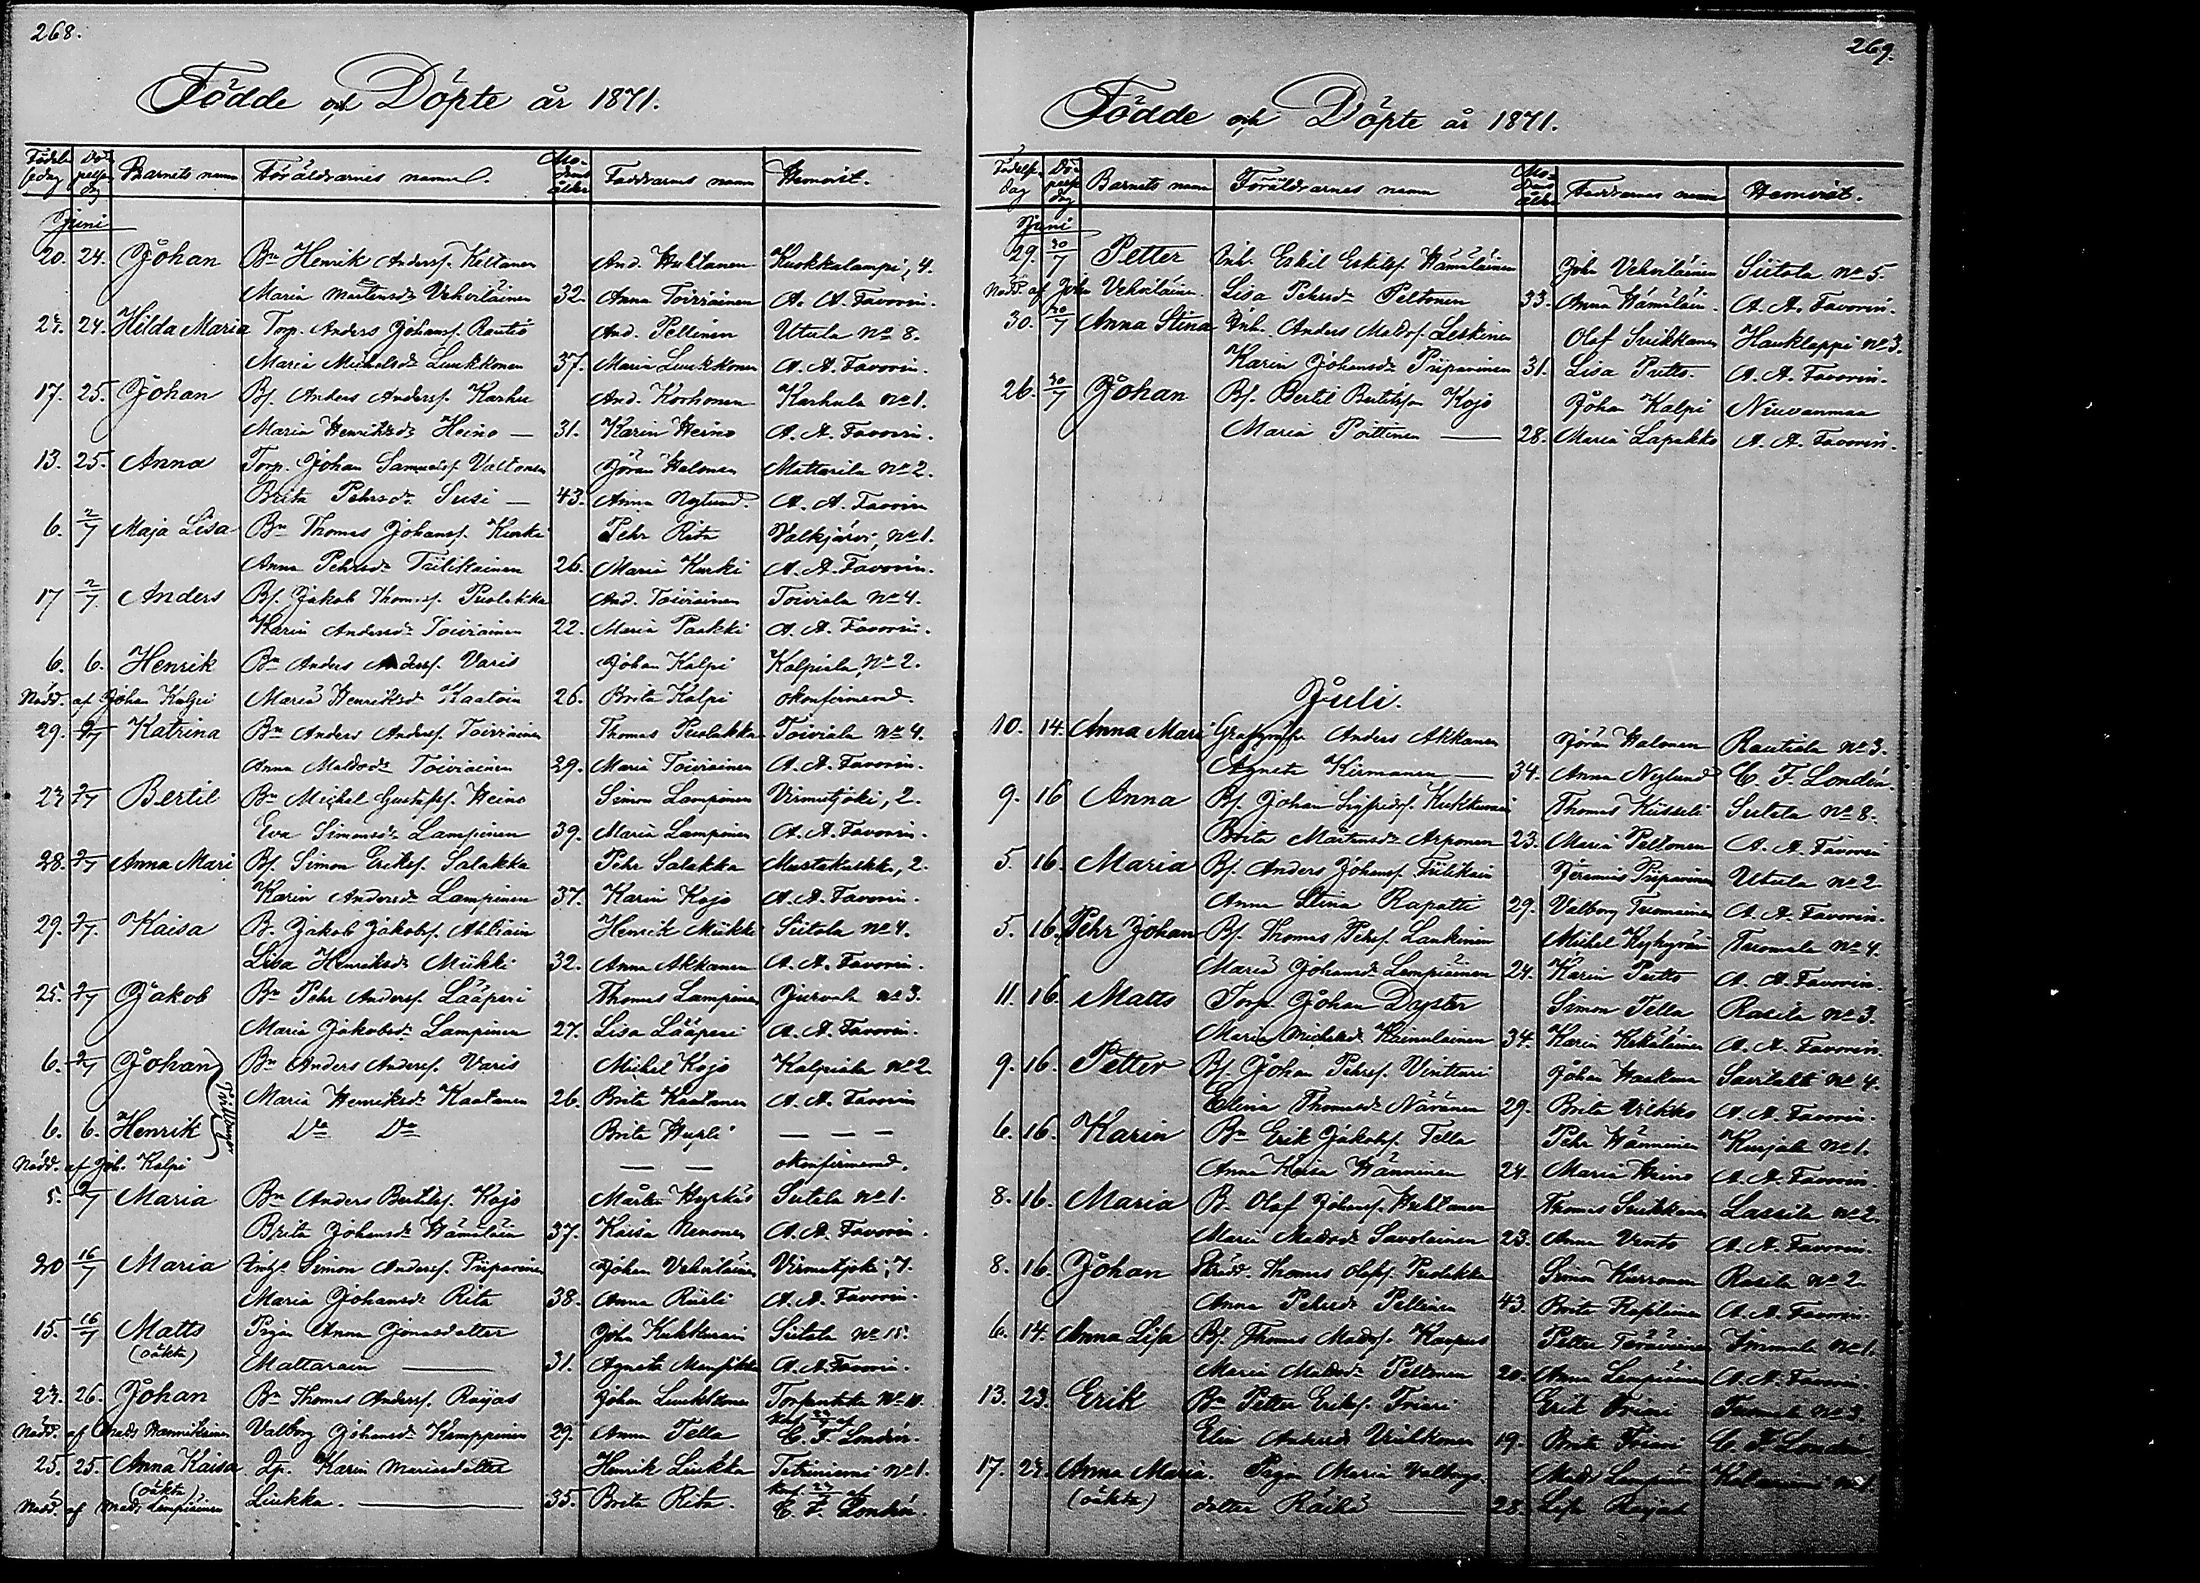 268.
Födde och Döpte år 1871.
Födelsedag Döpelsedag Barnets namn Föräldrarnes namn. Modrens ålder Faddrarnes namn Hemvist.
Juni
20. 24. Johan Bn Henrik Andersf. Keltanen And. Huhtanen Kuokkalampi, 4.
Maria Mårtensdr Vehviläinen 32. Anna Toiviainen A. A. Favorin.
24. Hilda Maria Torp. Anders Johansf. Rautio And. Pellinen Utula No 8.
Maria Michelsdr Luukkonen 37. Maria Luukkonen A. A. Favorin.
17. 25. Johan Bf. Anders Andersf. Karhu And. Korhonen Karhula No 1.
Maria Henriksdr Heino — 31. Karin Heino A. A. Favorin.
13. 25. Anna Torp. Johan Samuelsf. Valtonen Jöran Halonen Mattarila No 2.
Brita Pehrsdr Susi — 43. Anna Nyglund A. A. Favorin
6. 2/7 Maja Lisa Bn Thomas Johansf. Kurki Pehr Rita Valkjärvi, No 1.
Anna Pehrsdr Tiilikainen 26. Maria Kurki A. A. Favorin.
17 2/7 Anders Bf. Jakob Thomasf. Puolakka And. Toiviainen Toiviala No 4.
Karin Andersdr Toiviainen 22. Maria Paakki A. A. Favorin.
6. 6. Henrik Bn Anders Andersf. Varis Johan Kalpi Kalpiala, No 2.
Nödd. af Johan Kalpi Maria Henriksdr 26. Brita Kalpi okonfirmerad.
29. 2/7 Katrina Bn Anders Andersf. Toiviainen Thomas Puolakka Toiviala No 4.
Anna Matsdr Toiviainen 29. Maria Toiviainen A. A. Favorin.
2/7 Bertil Bn Michel Gustafsf. Heino Simon Lampinen Virmutjoki, 2.
Eva Simonsdr Lampinen 39. Maria Lampinen A. A. Favorin.
28. 2/7 Anna Mari Bf. Simon Eriksf. Salakka Pehr Salakka 2.
Karin Andersdr Lampinen 37. Karin Kojo A. A. Favorin.
29. 2/7 Kaisa B. Jakob Jakobsf. Ahtiain Henrik Miikki Siitola No 4.
Lisa Henriksdr Miikki 32. Anna Akkanen A. A. Favorin.
25. 2/7 Jakob Bn Pehr Andersf. Lääperi Thomas Lampinen Jurvala No 3.
Maria Jakobsdr Lampinen 27. Lisa Lääperi A. A. Favorin.
6. 2/7 Johan Bn Anders Andersf. Varis Mikel Kojo Kalpiala No 2
Tvillingar
Maria Henriksdr Kaatanen 26. Brita Kaatanen A. A. Favorin
6. 6. Henrik Do Do Brita Hupli — — —
Nödd. af Joh. Kalpi — — okonfirmerad.
5. 2/7 Maria Bn Anders Bertilsf. Kojo Mårten Siitola No 1.
Brita Johansdr Hämäläin 37. Kaisa Nenonen A. A. Favorin.
20 16/7 Maria Inhs Simon Andersf. Piiparinen Johan Vehviläinen Virmutjoki, 7.
Maria Johansdr Rita 38. Anna A. A. Favorin.
15. 16/7 Matts Pigan Anna Jönasdotter John Kukkurain Siitola No 15.
(oäkta) Mattarain — 31. Agneta A. A. Favorin.
26. Johan Bn Thomas Andersf. Raijas Johan Luukkonen
Nödd. af Mats Hannikainen Valborg Johansdr Kemppinen 29. Anna Tella C. F. Londén.
25. 25. Anna Kaisa Karin Mariasdotter Henrik Liukka Tetriniemi No 1.
(oäkta)
Nödd. af Mats Lempiäinen Liukka. — 35. Brita Rita. C. F. Londén.
269.
Födde och Döpte år 1871.
Födelsedag Döpelsedag Barnets namn Föräldrarnes namn Modrens ålder Faddrarnes namn Hemvist.
Juni
29. 30/7 Petter Inh. Eskil Eskilsf. Hämäläinen John Vehviläinen Siitola No 5
Nödd. af John Vehviläinen Lisa Pehrsdr Peltonen 33. Anna Hämäläin. A. A. Favorin.
30. 30/7 Anna Stina Inh. Anders Matsf. Leskinen Olof Suikkanen Haukloppi No 3.
Karin Johansdr Piiparinen 31. Lisa Putto. A. A. Favorin.
26. 30/7 Johan Bf. Bertil Bertilsson Kojo Johan Kalpi Niuvanmaa
Maria Poittinen — 28. Maria Lapakko A. A. Favorin.
Juli.
10. 14. Anna Mari Anders Akkanen Jöran Halonen Rautiala No 3.
Agneta Kirmanen — 34. Anna Nyglund C. F. Londén.
9. 16 Anna Bf. Johan Sigfridsf. Kukkurain Thomas Kiisseli Siitola No 8.
Brita Mårtensdr Arponen 23. Maria Peltonen A. A. Favorin
5. 16. Maria Bf. Anders Johansf. Tiilikain Jeremias Piiparinen Utula No 2
Anna Stina Rapatti 29. Valborg Tuomainen A. A. Favorin.
5. 16. Pehr Johan Bf. Thomas Pehrsf. Lankinen Michel Tuomala No 4.
Maria Johansdr Lempiäinen 24. Karin Putto A. A. Favorin.
11. 16. Matts Torp. Johan Dyster Simon Tella Rasila No 3.
Maria Michelsdr Kainulainen 34. Karin Kekäläinen A. A. Favorin.
9. 16. Petter Bf. Johan Pehrsf. Vintturi Johan No 4.
Elina Thomasdr Navanen 29. Brita A. A. Favorin.
6. 16. Karin Bn Erik Jakobsf. Tella Pehr Hänninen Kurjala No 1.
Anna Kaisa Hänninen 24. Maria Heino A. A. Favorin.
8. 16. Maria B. Olof Johansf. Huhtanen Thomas Suikkanen Lassila No 2.
Maria Matsdr Savolainen 23. Anna Vento A. A. Favorin.
8. 16. Johan Thomas Olofsf. Puolakka Simon Kurronen Rasila No 2.
Anna Pehrsdr Pellinen 43. Brita A. A. Favorin.
6. 14. Anna Lisa Bf. Thomas Matsf. Karpus Petter Teräväinen Immola No 1.
Maria Matsdr Peltonen 20. Anna Lempiäinen A. A. Favorin.
13. 23. Erik Bn Petter Eriksf. Friari Erik No 3
Elin Andersdr 19. Brita C. F. Londén
17. Anna Maria. Pigan Maria Valborgs- Mats Lempiäin
(oäkta) dotter Räihä — 28. Lisa Raijas